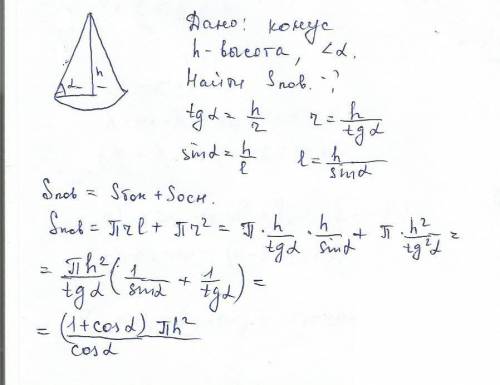 Дано: конус
h-высота, ∠α.
Найти Sпов. -?
tgα = h/r    r = h/tgα
sinα = h/l    l = h/sinα
h
α
Sпов = Sбок + Sосн.
Sпов = πrl + πr² = π · h/tgα · h/sinα + π · h²/tg²α =
= πh²/tgα (1/sinα + 1/tgα) =
= (1+cosα) πh²/cosα